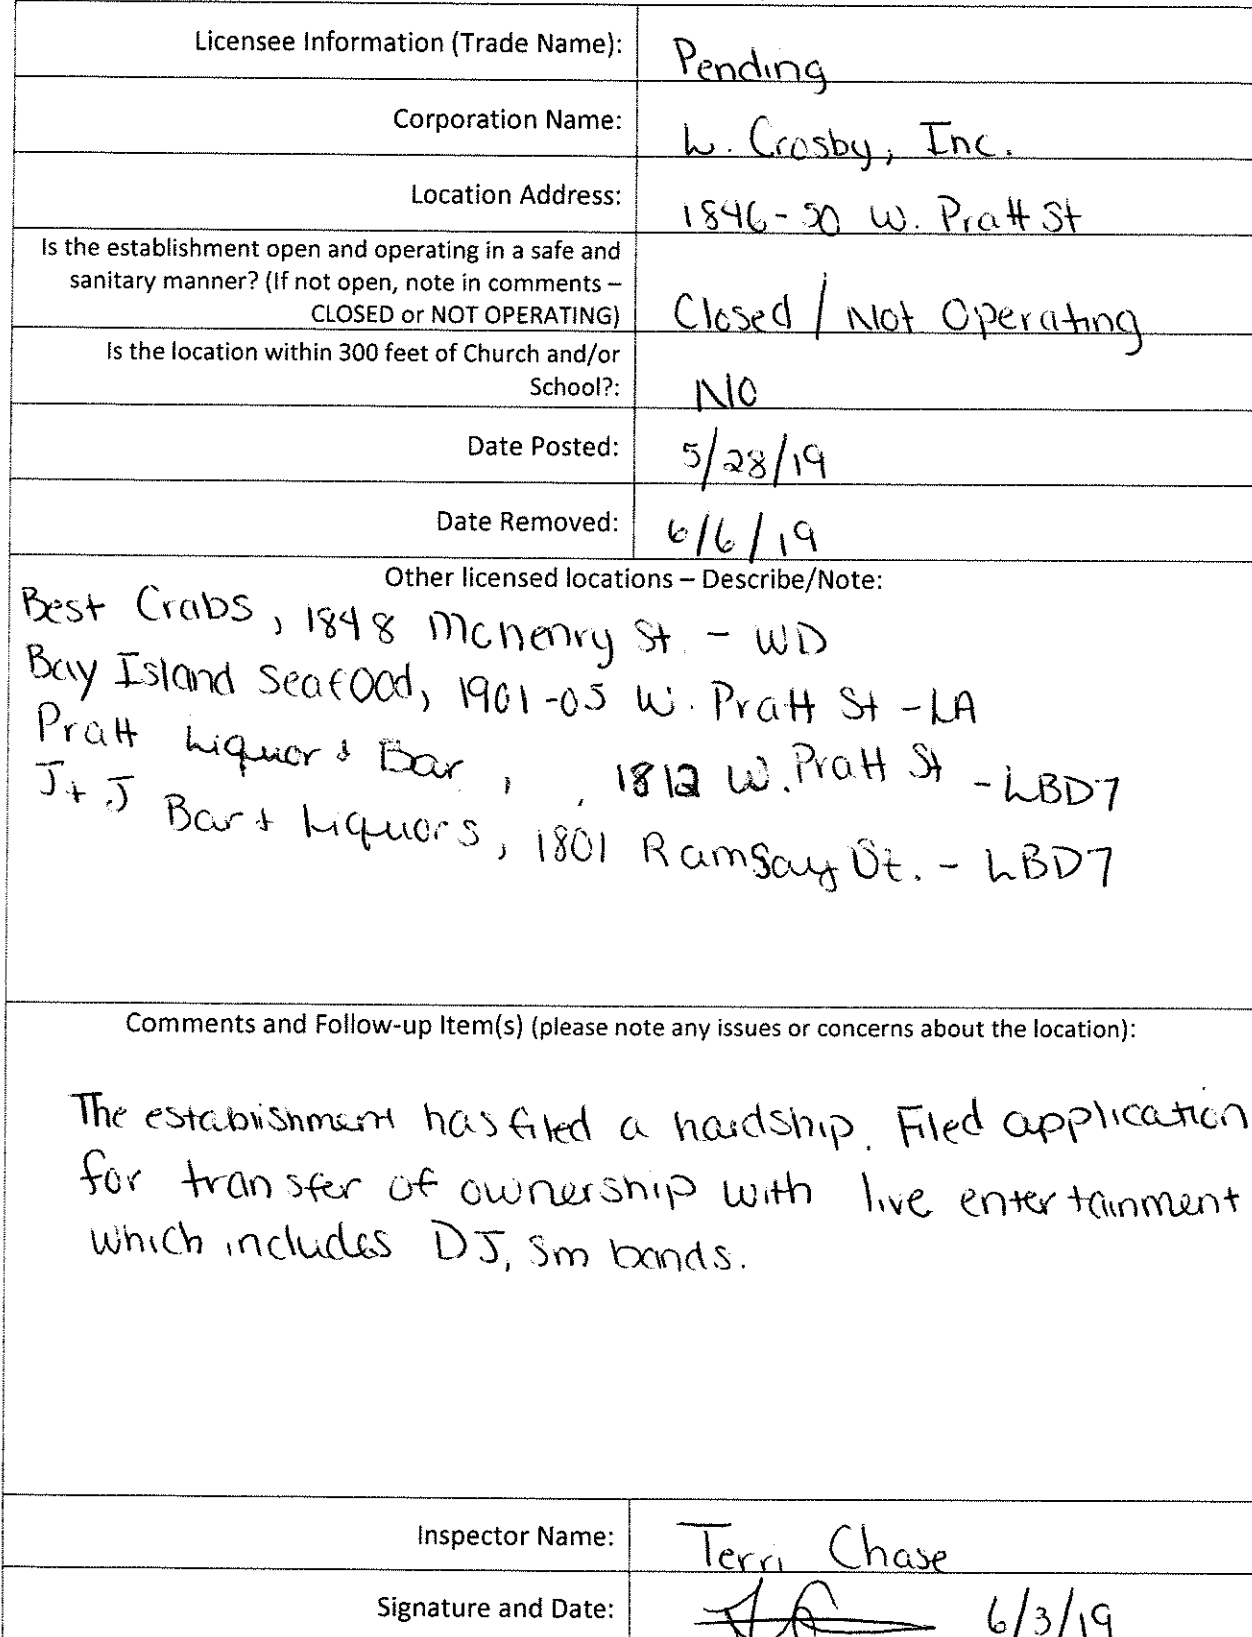 Licensee Information (Trade Name): Pending
Corporation Name: L. Crosby, Inc.
Location Address: 1846-50 W. Pratt St
Is the establishment open and operating in a safe and
sanitary manner? (If not open, note in comments –
CLOSED or NOT OPERATING) Closed / Not Operating
Is the location within 300 feet of Church and/or
School?: NO
Date Posted: 5/28/19
Date Removed: 6/6/19
Other licensed locations – Describe/Note:
Best Crabs, 1848 Mchenry St. - WD
Bay Island Seafood, 1901-05 W. Pratt St - LA
Pratt Liquor & Bar, 1812 W. Pratt St - LBD7
J+J Bar & Liquors, 1801 Ramsay St. - LBD7
Comments and Follow-up Item(s) (please note any issues or concerns about the location):
The establishment has filed a hardship. Filed application
for transfer of ownership with live entertainment
which includes DJ, sm bands.
Inspector Name: Terri Chase
Signature and Date: 6/3/19